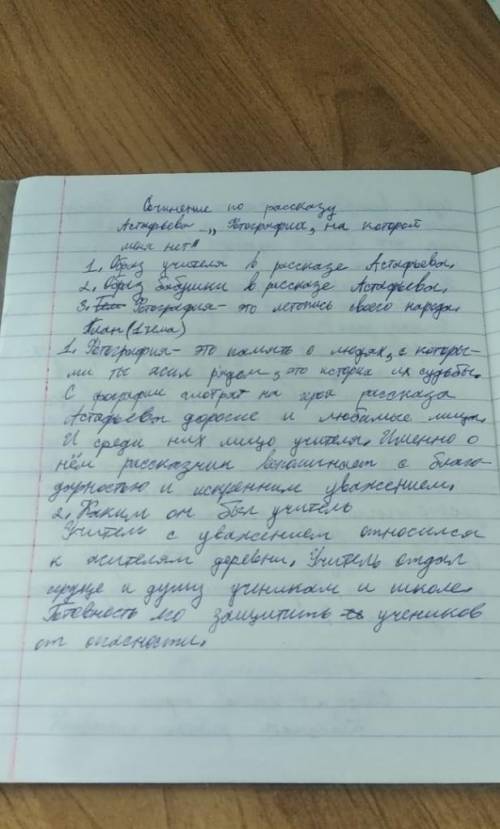 Сочинение по рассказу
Астафьева „Фотография, на которой
меня нет"
1. Образ учителя в рассказе Астафьева.
2. Образ бабушки в рассказе Астафьева.
3. Фотография - это летопись своего народа.
План (1 тема)
1. Фотография - это память о людях, с которы-
ми ты жил рядом, это история их судьбы.
С фографии смотрят на хроя рассказа
Астафьева дорогие и любимые лица.
И среди них лицо учителя. Именно о
нём рассказчик вспоминает с благо-
дарностью и искренним уважением.
2. Каким он был учитель
Учитель с уважением относился
к жителям деревни. Учитель отдал
сердце и душу ученикам и школе.
Готовность его защитить учеников
от опасности.